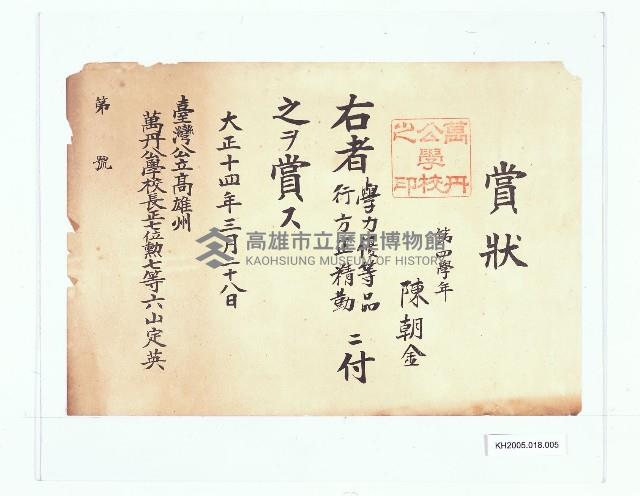 賞狀
萬丹
公學校
之印
第四學年
陳朝金
右者學力優等品行方正精勤ニ付
之ヲ賞ス
大正十四年三月二十八日
臺灣公立高雄州
萬丹公學校長正七位勲七等六山定英
第 號
高雄市立歷史博物館
KAOHSIUNG MUSEUM OF HISTORY
KH2005.018.005